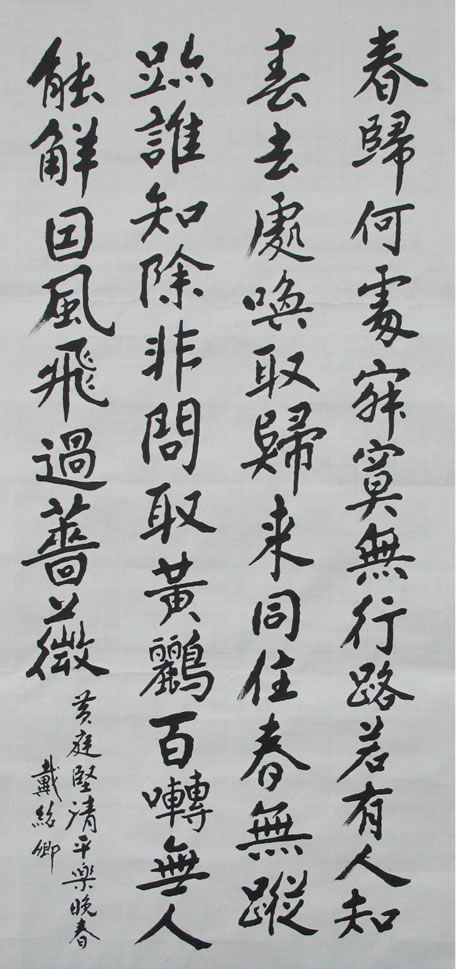 春歸何處寂寞無行路若有人知
春去處喚取歸来同住春無蹤
跡誰知除非問取黃鸝百囀無人
能解因風飛過薔薇
黄庭堅清平樂晚春
戴紹卿